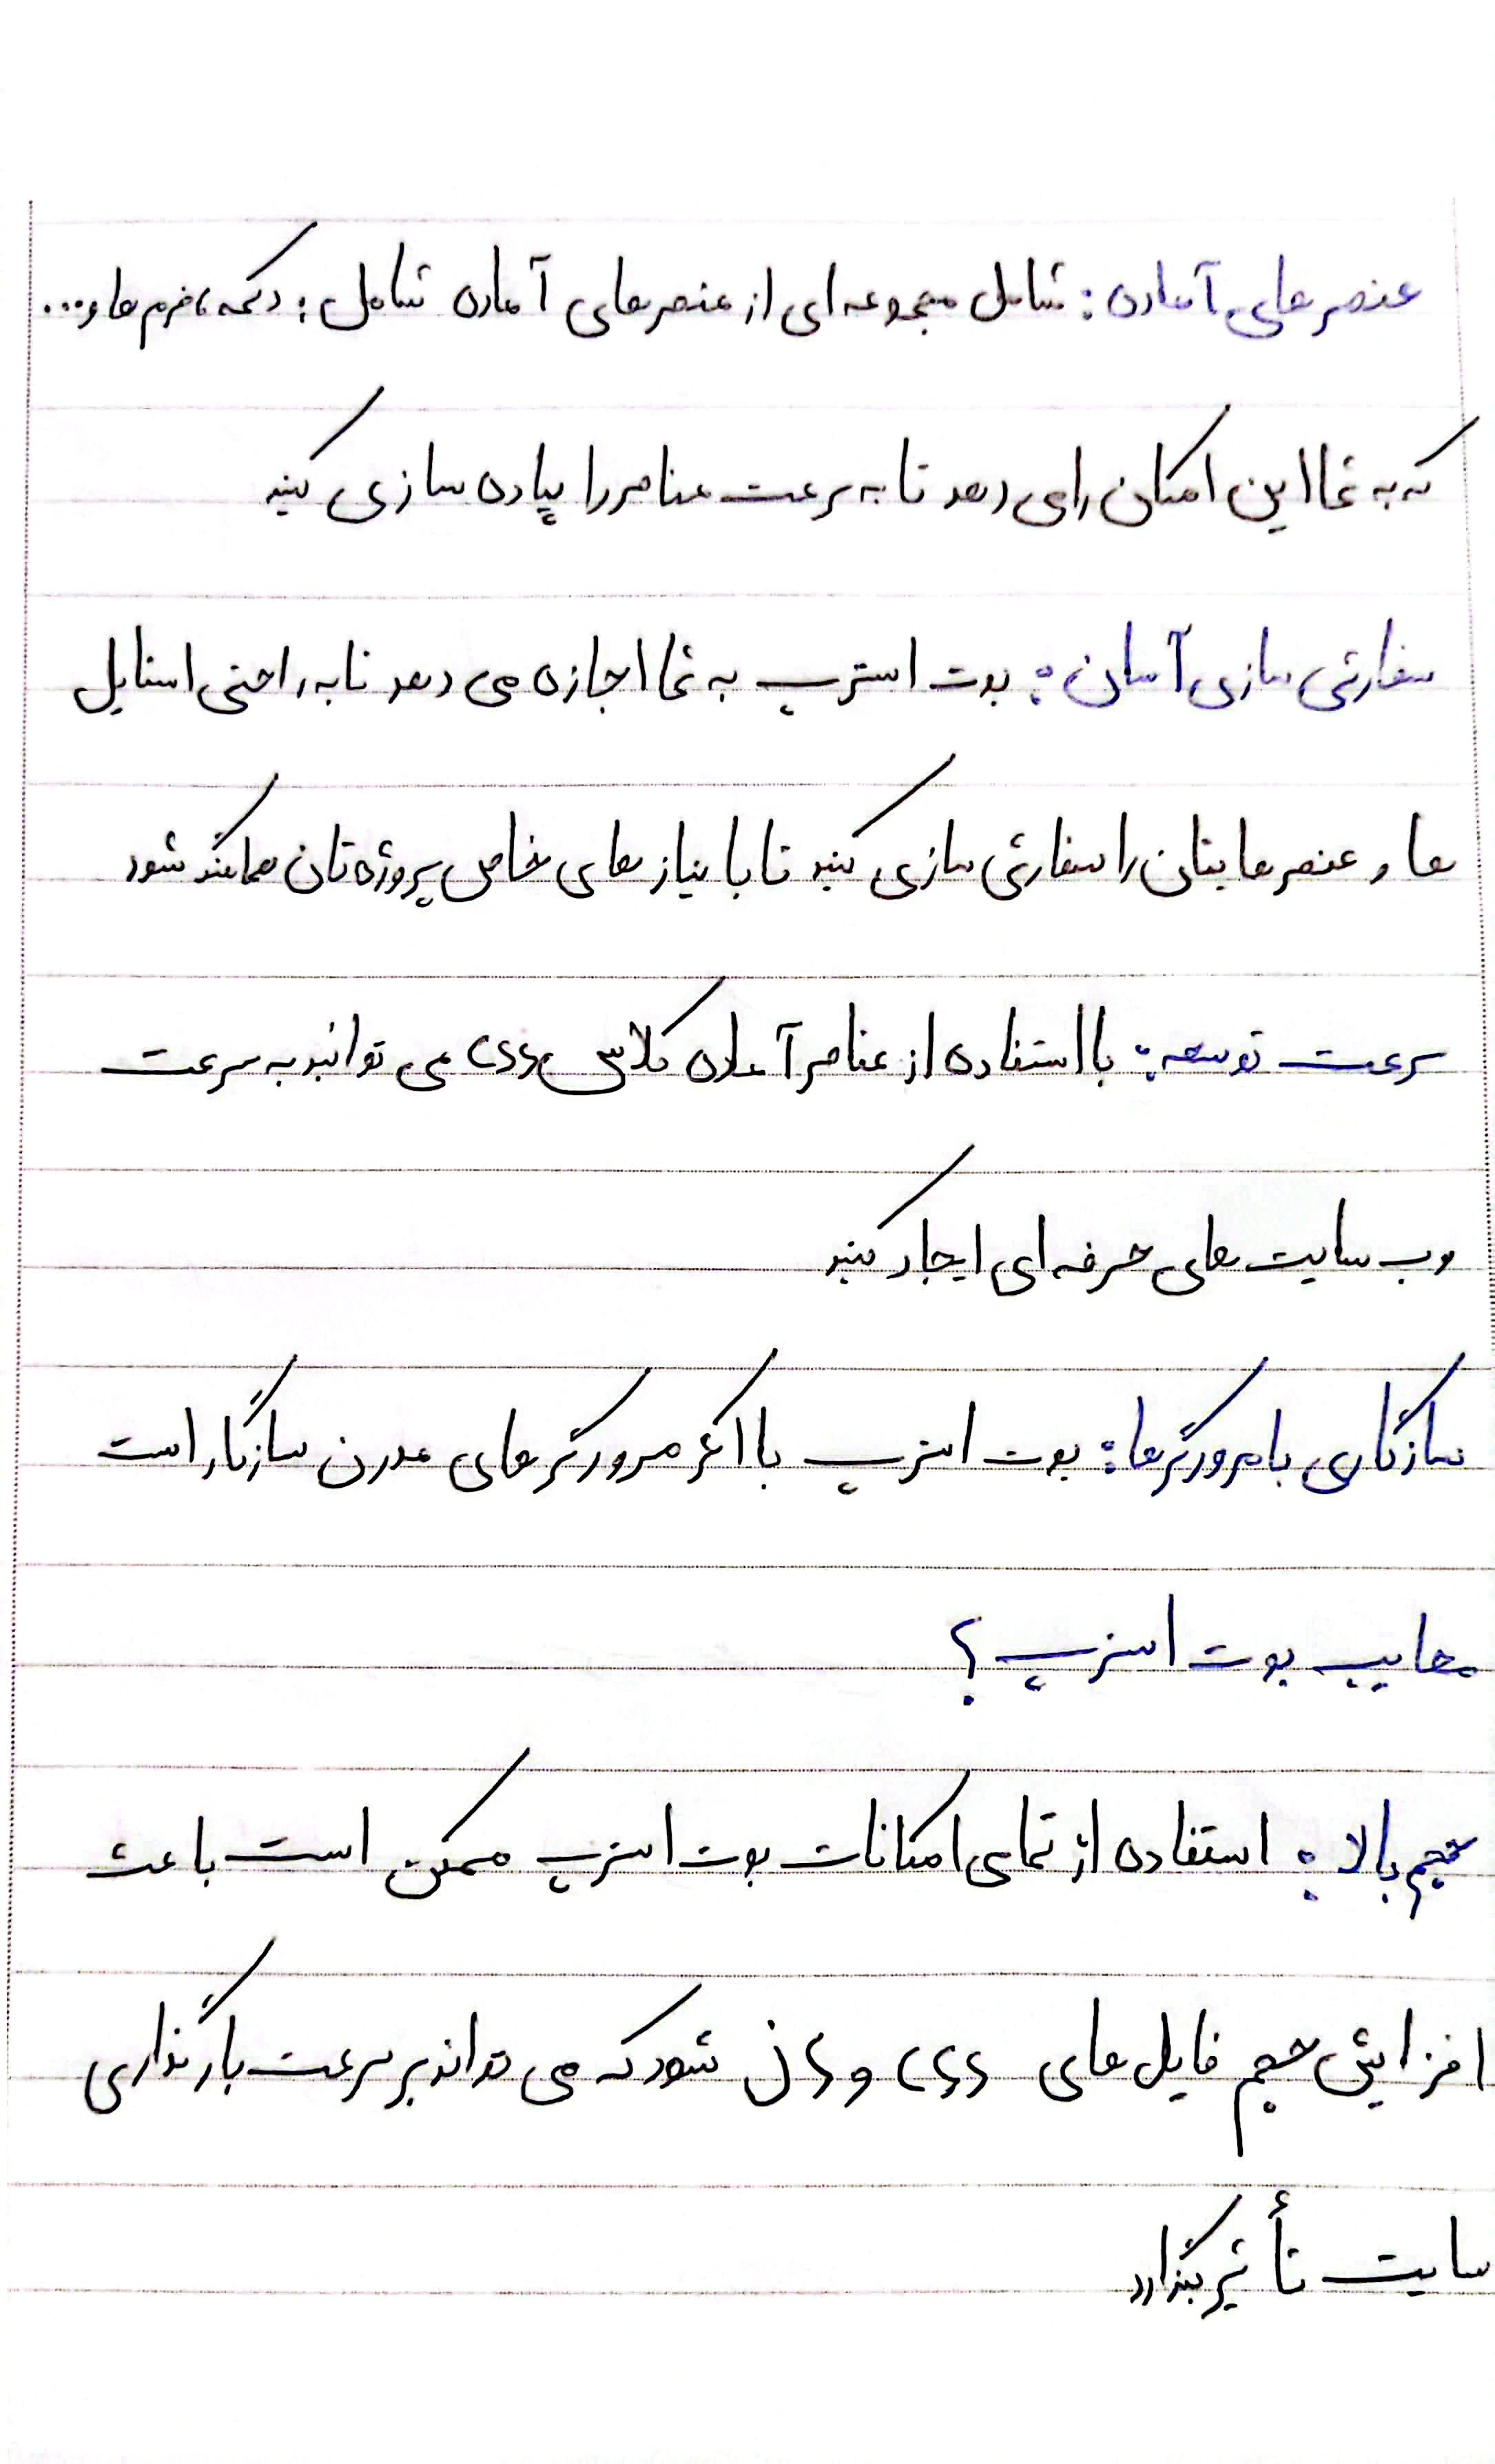 عنصرهای آماده: شامل مجموعه‌ای از عنصرهای آماده شامل: دکمه، فرم‌ها و...
که به شما این امکان را می‌دهد تا به سرعت عناصر را پیاده سازی کنید
سفارشی سازی آسان: بوت استرپ به شما اجازه می دهد تا به راحتی استایل
ها و عنصرهایتان را سفارشی سازی کنید تا با نیازهای خاص پروژه تان هماهنگ شود
سرعت توسعه: با استفاده از عناصر آماده کلاس css می توانید به سرعت
وب سایت های حرفه ای ایجاد کنید
سازگاری با مرورگرها: بوت استرپ با اکثر مرورگرهای مدرن سازگار است
معایب بوت استرپ؟
حجم بالا: استفاده از تمامی امکانات بوت استرپ ممکن است باعث
افزایش حجم فایل های css و js شود که می تواند بر سرعت بارگذاری
سایت تأثیر بگذارد